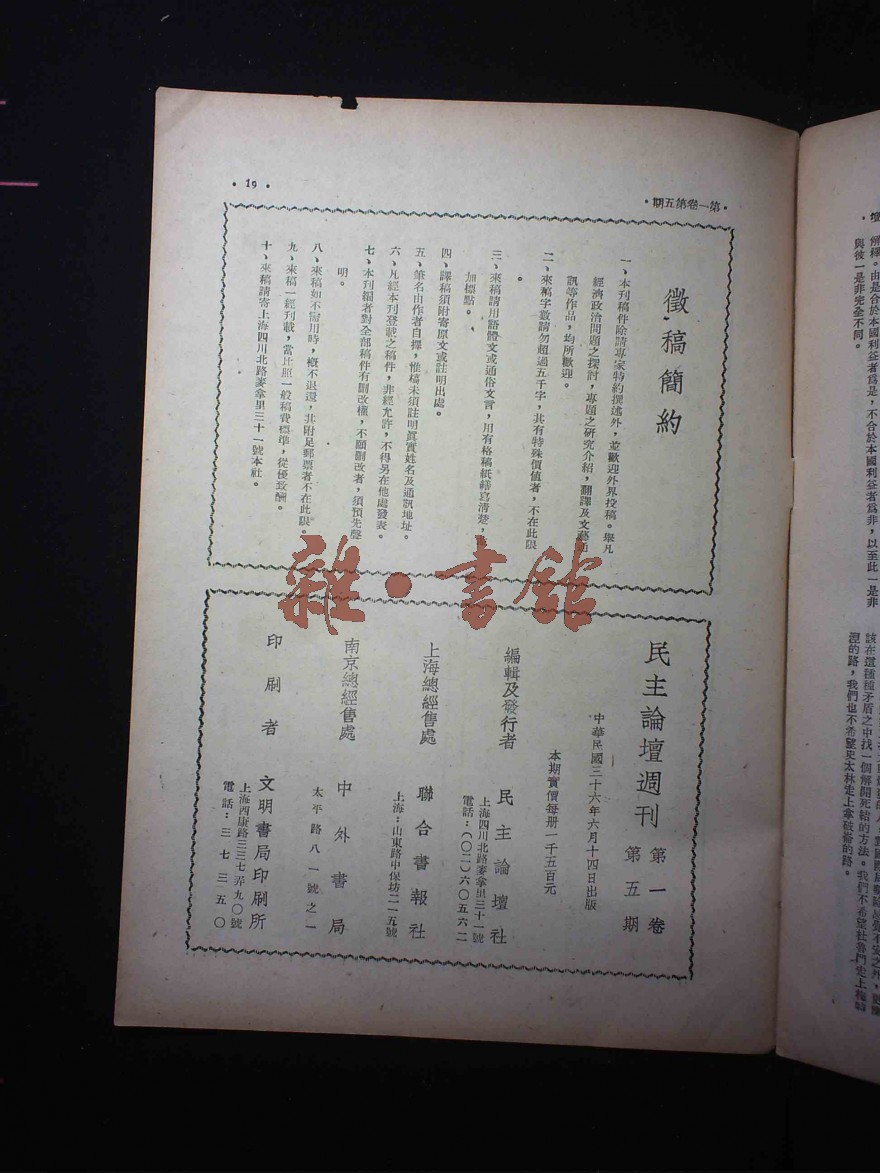 ·第一卷第五期·
·19·
徵稿簡約
一、本刊稿件除請專家特約撰述外，並歡迎外界投稿。舉凡
經濟政治問題之探討，專題之研究介紹，翻譯及文藝通
訊等作品，均所歡迎。
二、來稿字數請勿超過五千字，其有特殊價值者，不在此限
。
三、來稿請用語體文或通俗文言，用有格稿紙繕寫清楚，
加標點。
四、譯稿須附寄原文或註明出處。
五、筆名由作者自擇，惟稿末須註明眞實姓名及通訊地址。
六、凡經本刊登載之稿件，非經允許，不得另在他處發表。
七、本刊編者對全部稿件有刪改權，不願刪改者，須預先聲
明。
八、來稿如不需用時，概不退還，其附足郵票者不在此限。
九、來稿一經刊載，當比照一般稿費標準，從優致酬。
十、來稿請寄上海四川北路麥拿里三十一號本社。
雜·書館
民主論壇週刊 第一卷 第五期
中華民國三十六年六月十四日出版
本期實價每册一千五百元
編輯及發行者 民主論壇社
上海四川北路麥拿里三十一號
電話：（〇二）六〇五六二
上海總經售處 聯合書報社
上海：山東路中保坊二一五號
南京總經售處 中外書局
太平路八一號之一
印刷者 文明書局印刷所
上海西康路三三七弄九〇號
電話：三七三五〇
解釋。由是合於本國利益者爲是，不合於本國利益者爲非，以至此一是非
與彼一是非完全不同。
該在這種種矛盾之中找一個解開死結的方法。我們不希望杜魯門走上
的路，我們也不希望史太林走上拿破崙的路。